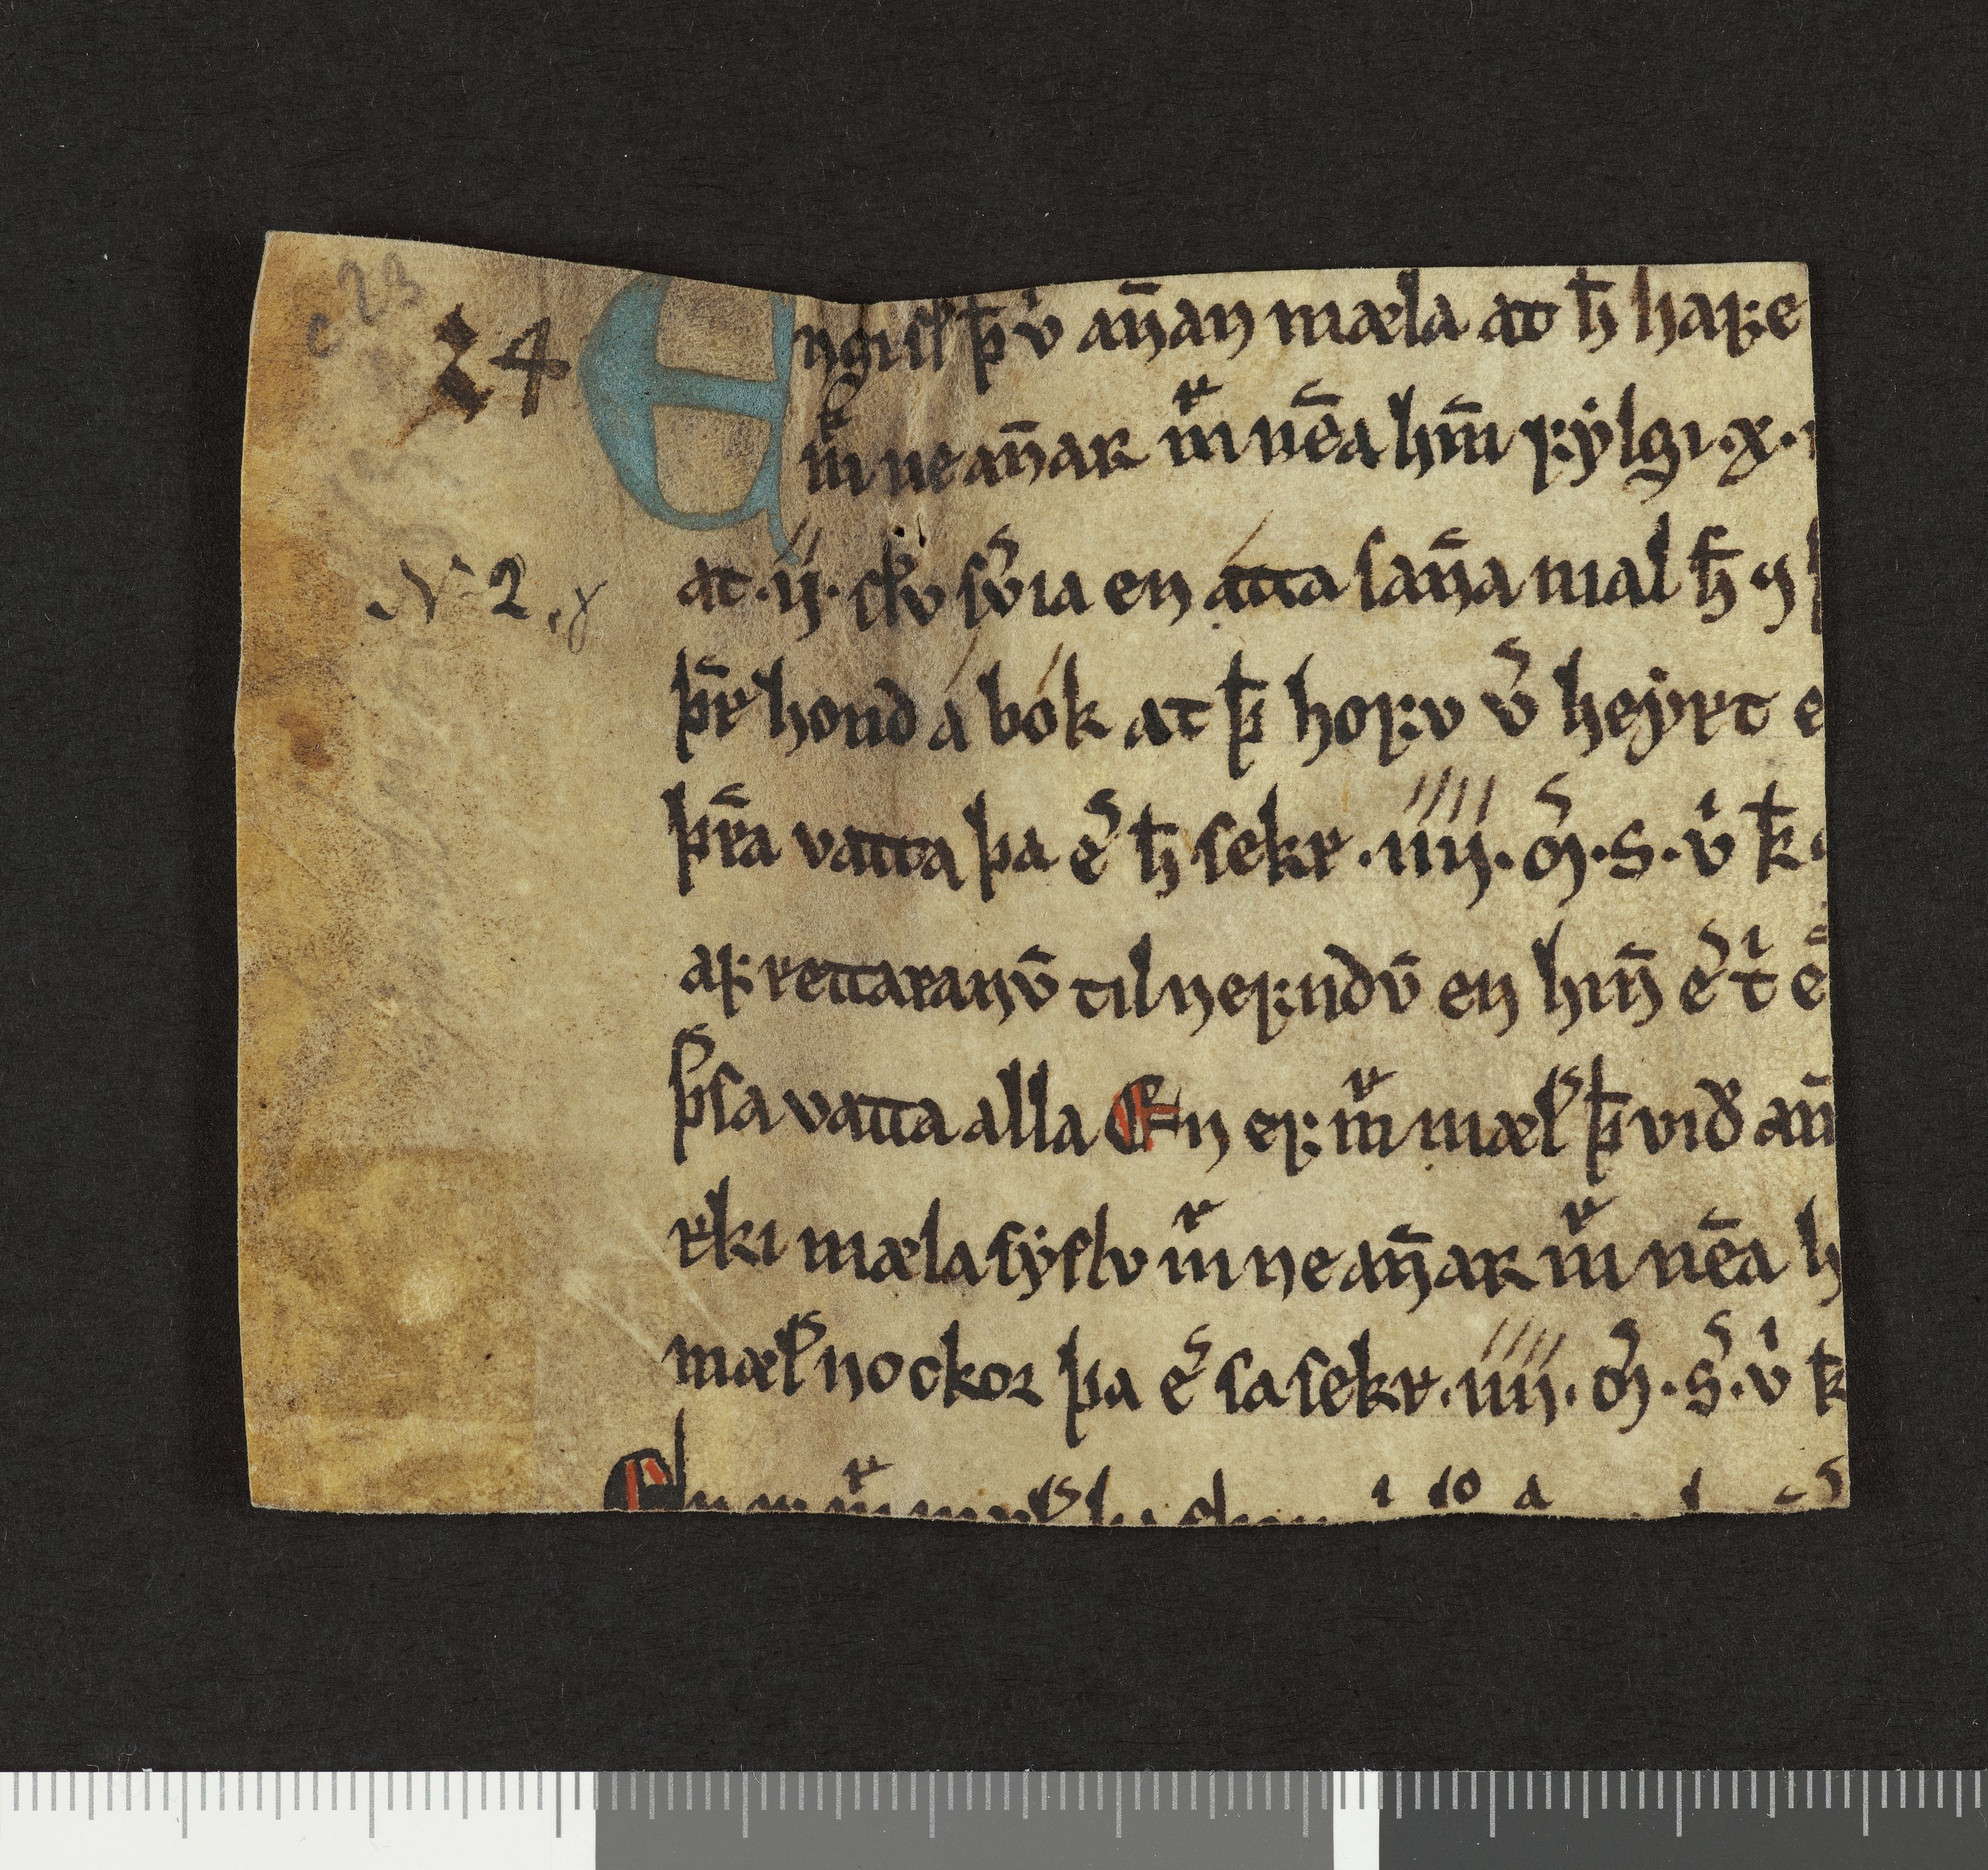 c 23
24
Engi sl̄ þ̄ v̍ an̄an mæla at h̄ hafe
m̄ͬ ne an̄ar m̄ͬ nēa hm̄ fylgi·x·
N 2.
at·ij·sl̄v sv͛ia en átta san̄a mal h̄ ꞇ
þr̄ hond á bók at þ̄ hofv v͛ heyrt e
þr̄a vatta þa e͛ h̄ sekr·iiij·m͛·s·v̍ k̄
af rettaranv̄ til nefndv̄ en hin̄ e͛ t̍ e
þ͛sa vatta alla En ef m̄ͬ mæl͛ þ̄ við an̄
rki mæla syslv m̄ͬ ne an̄ar m̄ͬ nēa h
mæl͛ nockor þa e͛ sa sekr·iiij·m͛·s͛·v̍ k̄